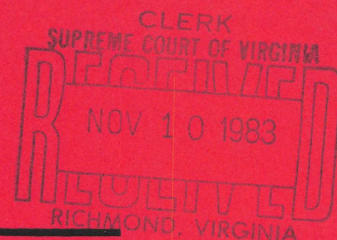 CLERK
SUPREME COURT OF VIRGINIA
RECEIVED
NOV 10 1983
RICHMOND, VIRGINIA